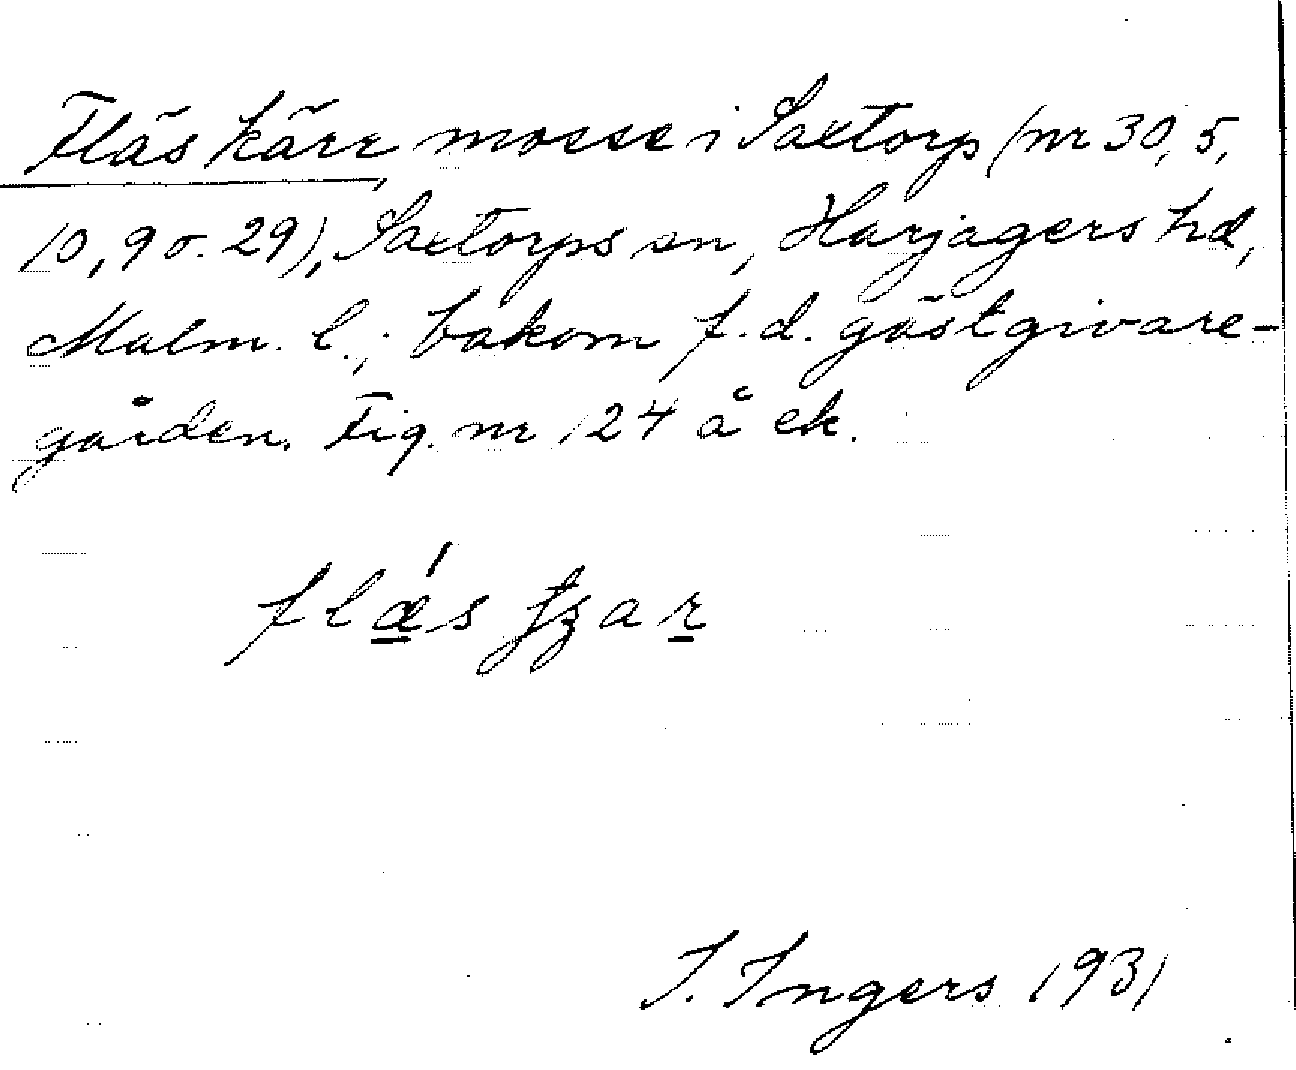 Fläskärr, mosse i Saxtorp (nr 30, 5,
10, 9 o. 29), Saxtorps sn, Harjagers hd,
Malm. l.; bakom f.d. gästgivare-
gården. Fig. nr 124 å ek.
I. Ingers 1931